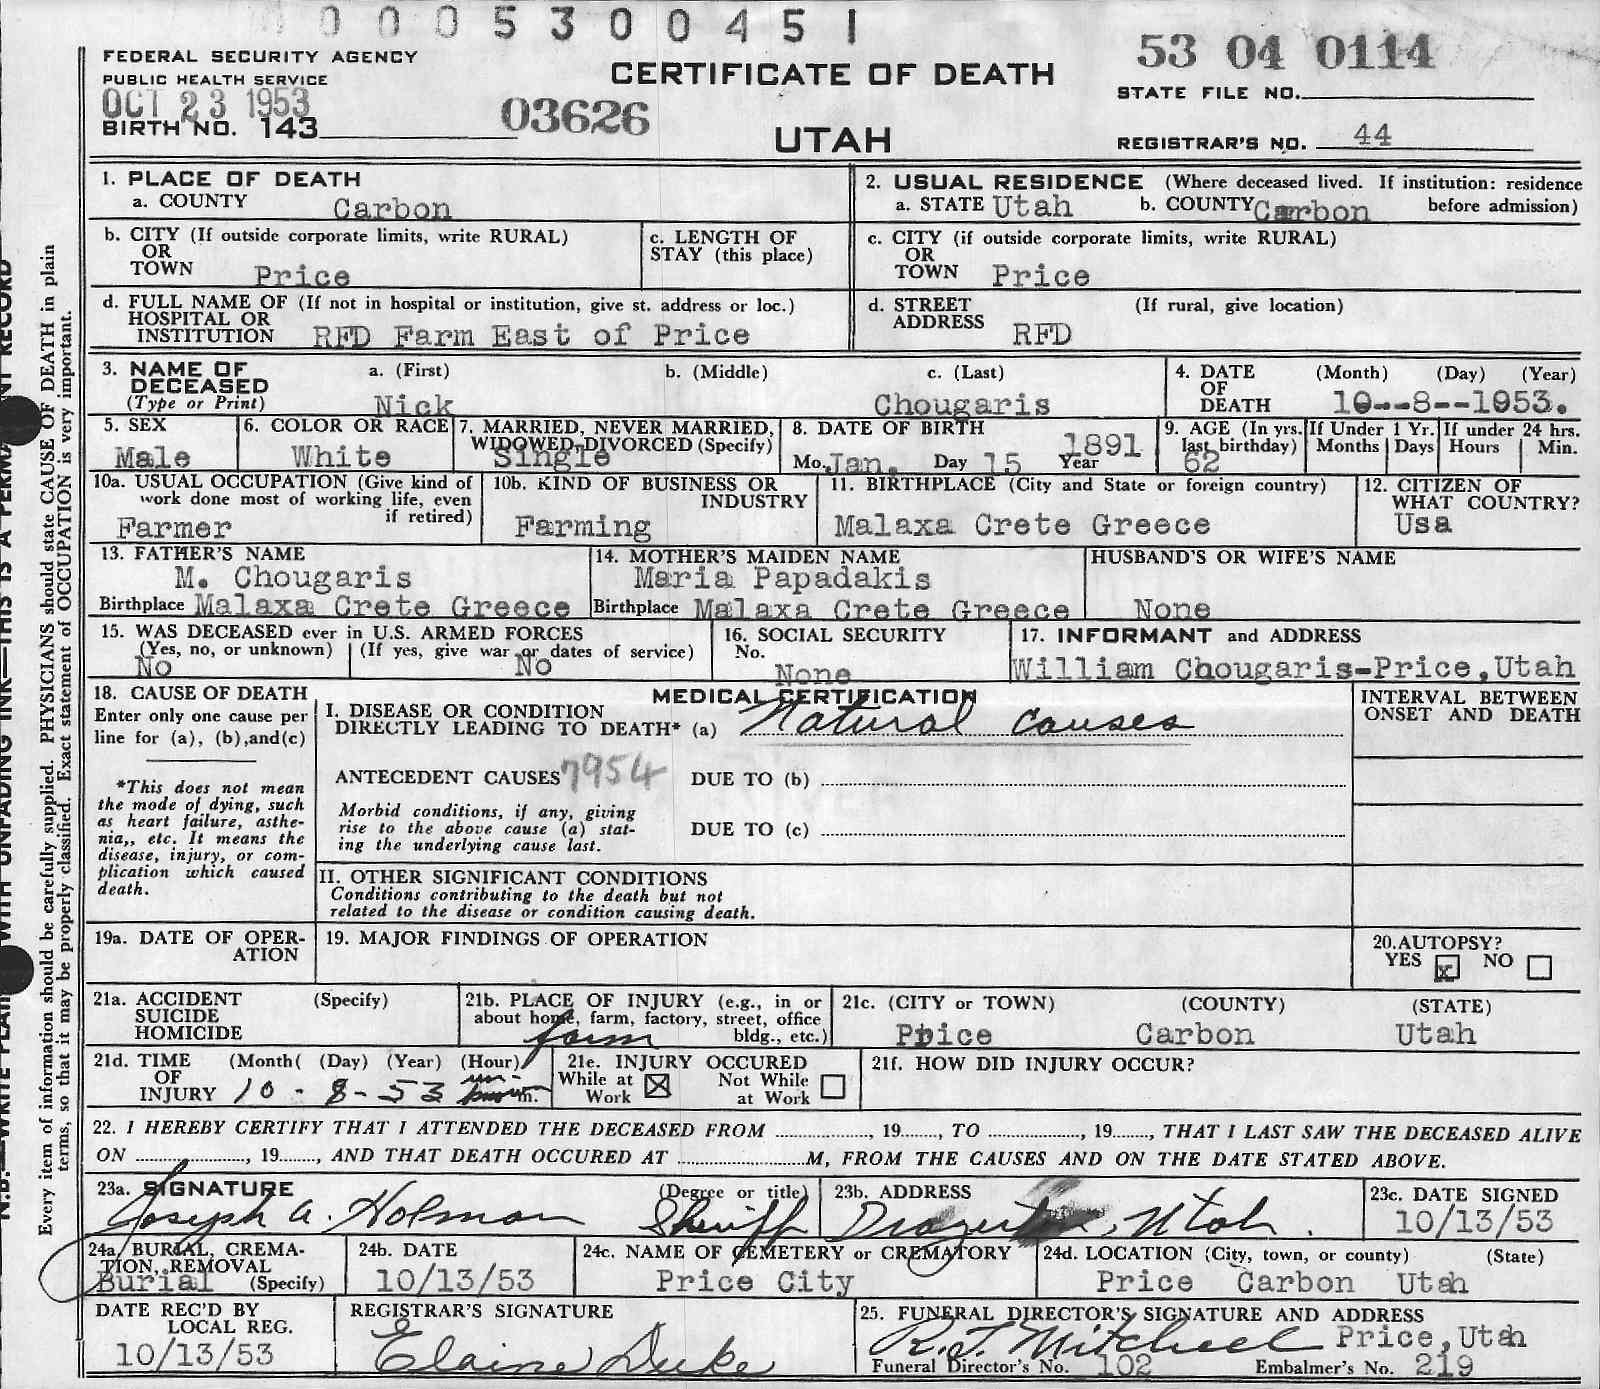 0 0 0 5 3 0 0 4 5 1
FEDERAL SECURITY AGENCY
PUBLIC HEALTH SERVICE
OCT 23 1953
BIRTH NO. 143
03626
CERTIFICATE OF DEATH
UTAH
53 04 0114
STATE FILE NO.
REGISTRAR'S NO. 44
1. PLACE OF DEATH
a. COUNTY Carbon
2. USUAL RESIDENCE (Where deceased lived. If institution: residence
a. STATE Utah b. COUNTY Carbon before admission)
b. CITY (If outside corporate limits, write RURAL)
OR
TOWN Price
c. LENGTH OF
STAY (this place)
c. CITY (if outside corporate limits, write RURAL)
OR
TOWN Price
d. FULL NAME OF (If not in hospital or institution, give st. address or loc.)
HOSPITAL OR
INSTITUTION RFD Farm East of Price
d. STREET (If rural, give location)
ADDRESS RFD
3. NAME OF a. (First) b. (Middle) c. (Last)
DECEASED
(Type or Print) Nick Chougaris
4. DATE (Month) (Day) (Year)
OF
DEATH 10--8--1953.
5. SEX
Male
6. COLOR OR RACE
White
7. MARRIED, NEVER MARRIED,
WIDOWED, DIVORCED (Specify)
Single
8. DATE OF BIRTH
Mo. Jan. Day 15 Year 1891
9. AGE (In yrs.
last birthday)
62
If Under 1 Yr.
Months Days
If under 24 hrs.
Hours Min.
10a. USUAL OCCUPATION (Give kind of
work done most of working life, even
if retired)
Farmer
10b. KIND OF BUSINESS OR
INDUSTRY
Farming
11. BIRTHPLACE (City and State or foreign country)
Malaxa Crete Greece
12. CITIZEN OF
WHAT COUNTRY?
Usa
13. FATHER'S NAME
M. Chougaris
Birthplace Malaxa Crete Greece
14. MOTHER'S MAIDEN NAME
Maria Papadakis
Birthplace Malaxa Crete Greece
HUSBAND'S OR WIFE'S NAME
None
15. WAS DECEASED ever in U.S. ARMED FORCES
(Yes, no, or unknown) (If yes, give war or dates of service)
No No
16. SOCIAL SECURITY
No.
None
17. INFORMANT and ADDRESS
William Chougaris-Price, Utah
18. CAUSE OF DEATH
Enter only one cause per
line for (a), (b), and (c)
*This does not mean
the mode of dying, such
as heart failure, asthe-
nia,, etc. It means the
disease, injury, or com-
plication which caused
death.
MEDICAL CERTIFICATION
I. DISEASE OR CONDITION
DIRECTLY LEADING TO DEATH* (a) Natural causes
ANTECEDENT CAUSES 7954 DUE TO (b)
Morbid conditions, if any, giving
rise to the above cause (a) stat-
ing the underlying cause last.
DUE TO (c)
INTERVAL BETWEEN
ONSET AND DEATH
II. OTHER SIGNIFICANT CONDITIONS
Conditions contributing to the death but not
related to the disease or condition causing death.
19a. DATE OF OPER-
ATION
19. MAJOR FINDINGS OF OPERATION
20. AUTOPSY?
YES x NO
21a. ACCIDENT (Specify)
SUICIDE
HOMICIDE
21b. PLACE OF INJURY (e.g., in or
about home, farm, factory, street, office
bldg., etc.)
farm
21c. (CITY or TOWN) (COUNTY) (STATE)
Price Carbon Utah
21d. TIME (Month( (Day) (Year) (Hour)
OF
INJURY 10 - 8 - 53 m.
21e. INJURY OCCURED
While at Not While
Work at Work
21f. HOW DID INJURY OCCUR?
22. I HEREBY CERTIFY THAT I ATTENDED THE DECEASED FROM ........, 19......, TO ........, 19......, THAT I LAST SAW THE DECEASED ALIVE
ON ........, 19......, AND THAT DEATH OCCURED AT ........M, FROM THE CAUSES AND ON THE DATE STATED ABOVE.
23a. SIGNATURE (Degree or title)
Joseph A. Holman Sheriff
23b. ADDRESS
Utah.
23c. DATE SIGNED
10/13/53
24a. BURIAL, CREMA-
TION, REMOVAL
Burial (Specify)
24b. DATE
10/13/53
24c. NAME OF CEMETERY or CREMATORY
Price City
24d. LOCATION (City, town, or county) (State)
Price Carbon Utah
DATE REC'D BY
LOCAL REG.
10/13/53
REGISTRAR'S SIGNATURE
Elaine Duke
25. FUNERAL DIRECTOR'S SIGNATURE AND ADDRESS
R.J. Mitchell Price, Utah
Funeral Director's No. 102 Embalmer's No. 219
Every item of information should be carefully supplied. PHYSICIANS should state CAUSE OF DEATH in plain
terms, so that it may be properly classified. Exact statement of OCCUPATION is very important.